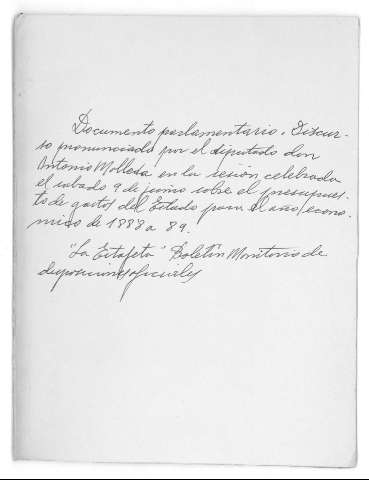 Documento parlamentario. Discur-
so pronunciado por el diputado don
Antonio Molleda en la sesión celebrada
el sabado 9 de junio sobre el presupues-
to de gastos del Estado para el año econo-
mico de 1888 a 89.
"La Estafeta" Boletín Monitorio de
disposiciones oficiales